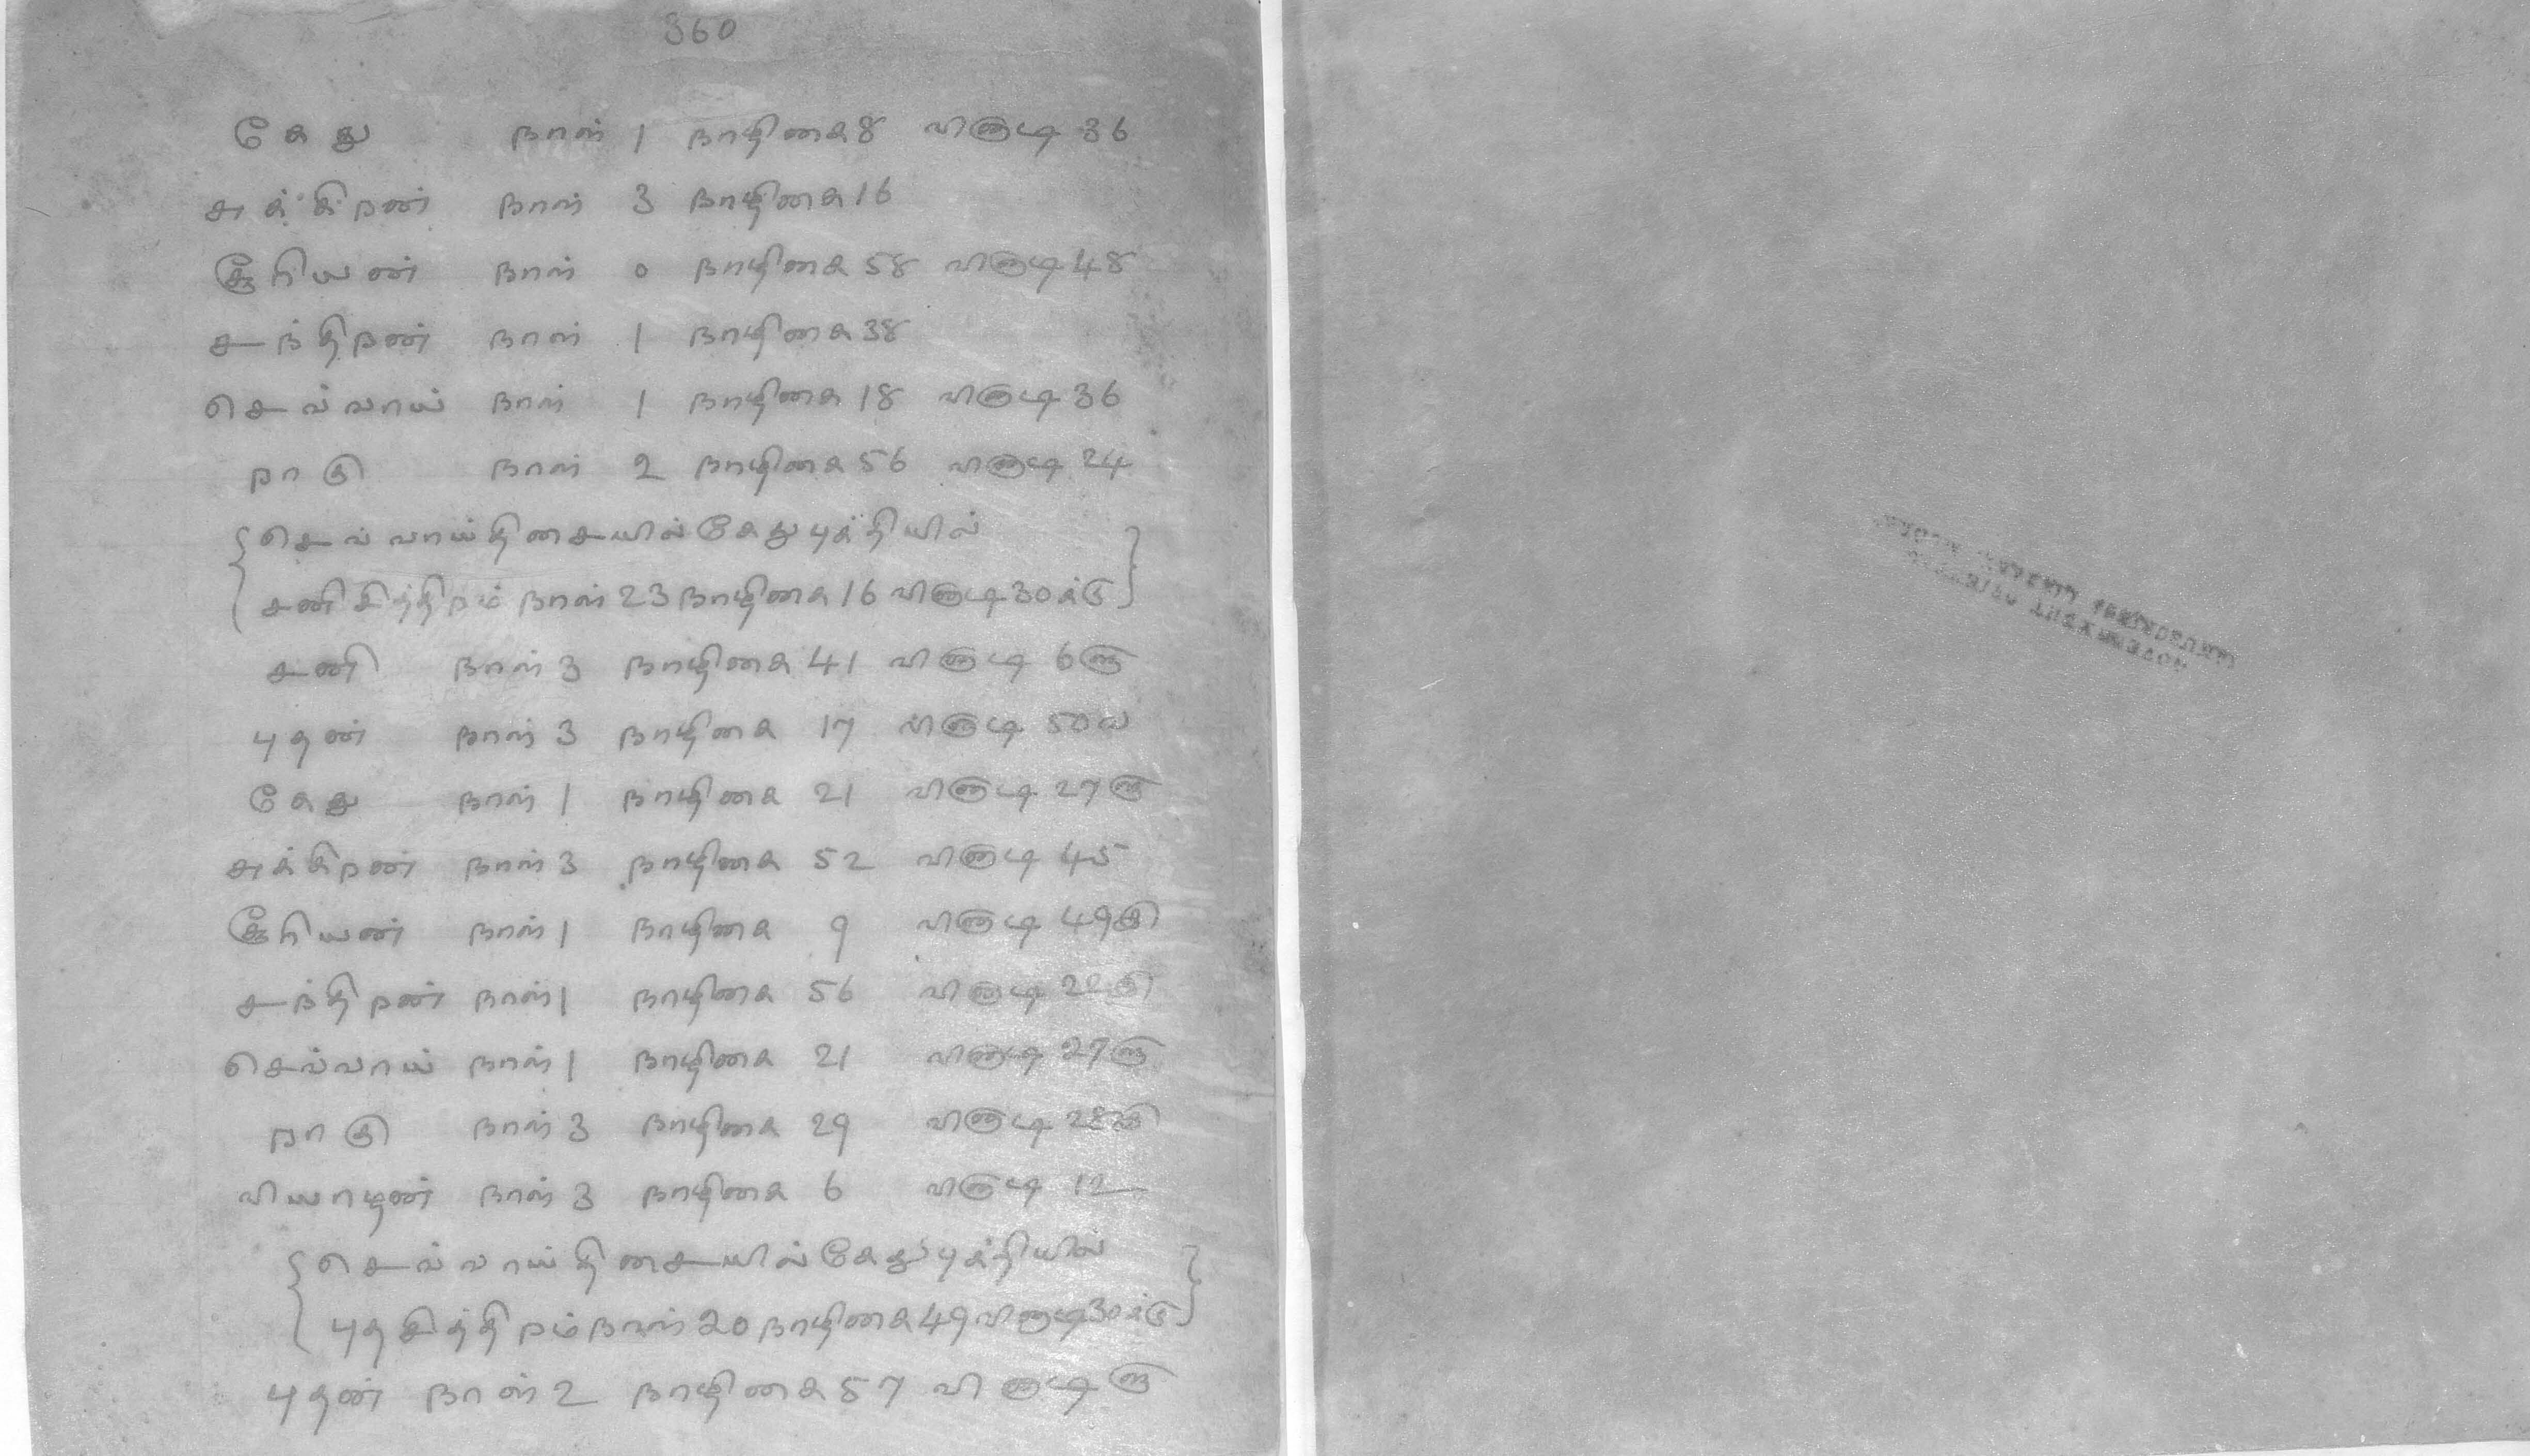 360
கேது நாள் 1 நாழிகை 8 விநாடி 36
சுக்கிறன் நாள் 3 நாழிகை 16
சூரியன் நாள் 0 நாழிகை 58 விநாடி 48
சந்திறன் நாள் 1 நாழிகை 38
செவ்வாய் நாள் 1 நாழிகை 18 விநாடி 36
றாகு நாள் 2 நாழிகை 56 விநாடி 24
செவ்வாய்திசையில் கேதுபுக்தியில்
சனிசித்திறம் நாள் 23 நாழிகை 16 விநாடி 30க்கு
சனி நாள் 3 நாழிகை 41 விநாடி 6
புதன் நாள் 3 நாழிகை 17 விநாடி 50
கேது நாள் 1 நாழிகை 21 விநாடி 27
சுக்கிறன் நாள் 3 நாழிகை 52 விநாடி 45
சூரியன் நாள் 1 நாழிகை 9 விநாடி 49
சந்திறன் நாள் 1 நாழிகை 56 விநாடி 22
செவ்வாய் நாள் 1 நாழிகை 21 விநாடி 27
றாகு நாள் 3 நாழிகை 29 விநாடி 28
வியாழன் நாள் 3 நாழிகை 6 விநாடி 12
செவ்வாய்திசையில் கேதுபுக்தியில்
புதசித்திறம் நாள் 20 நாழிகை 49 விநாடி 30க்கு
புதன் நாள் 2 நாழிகை 57 விநாடி